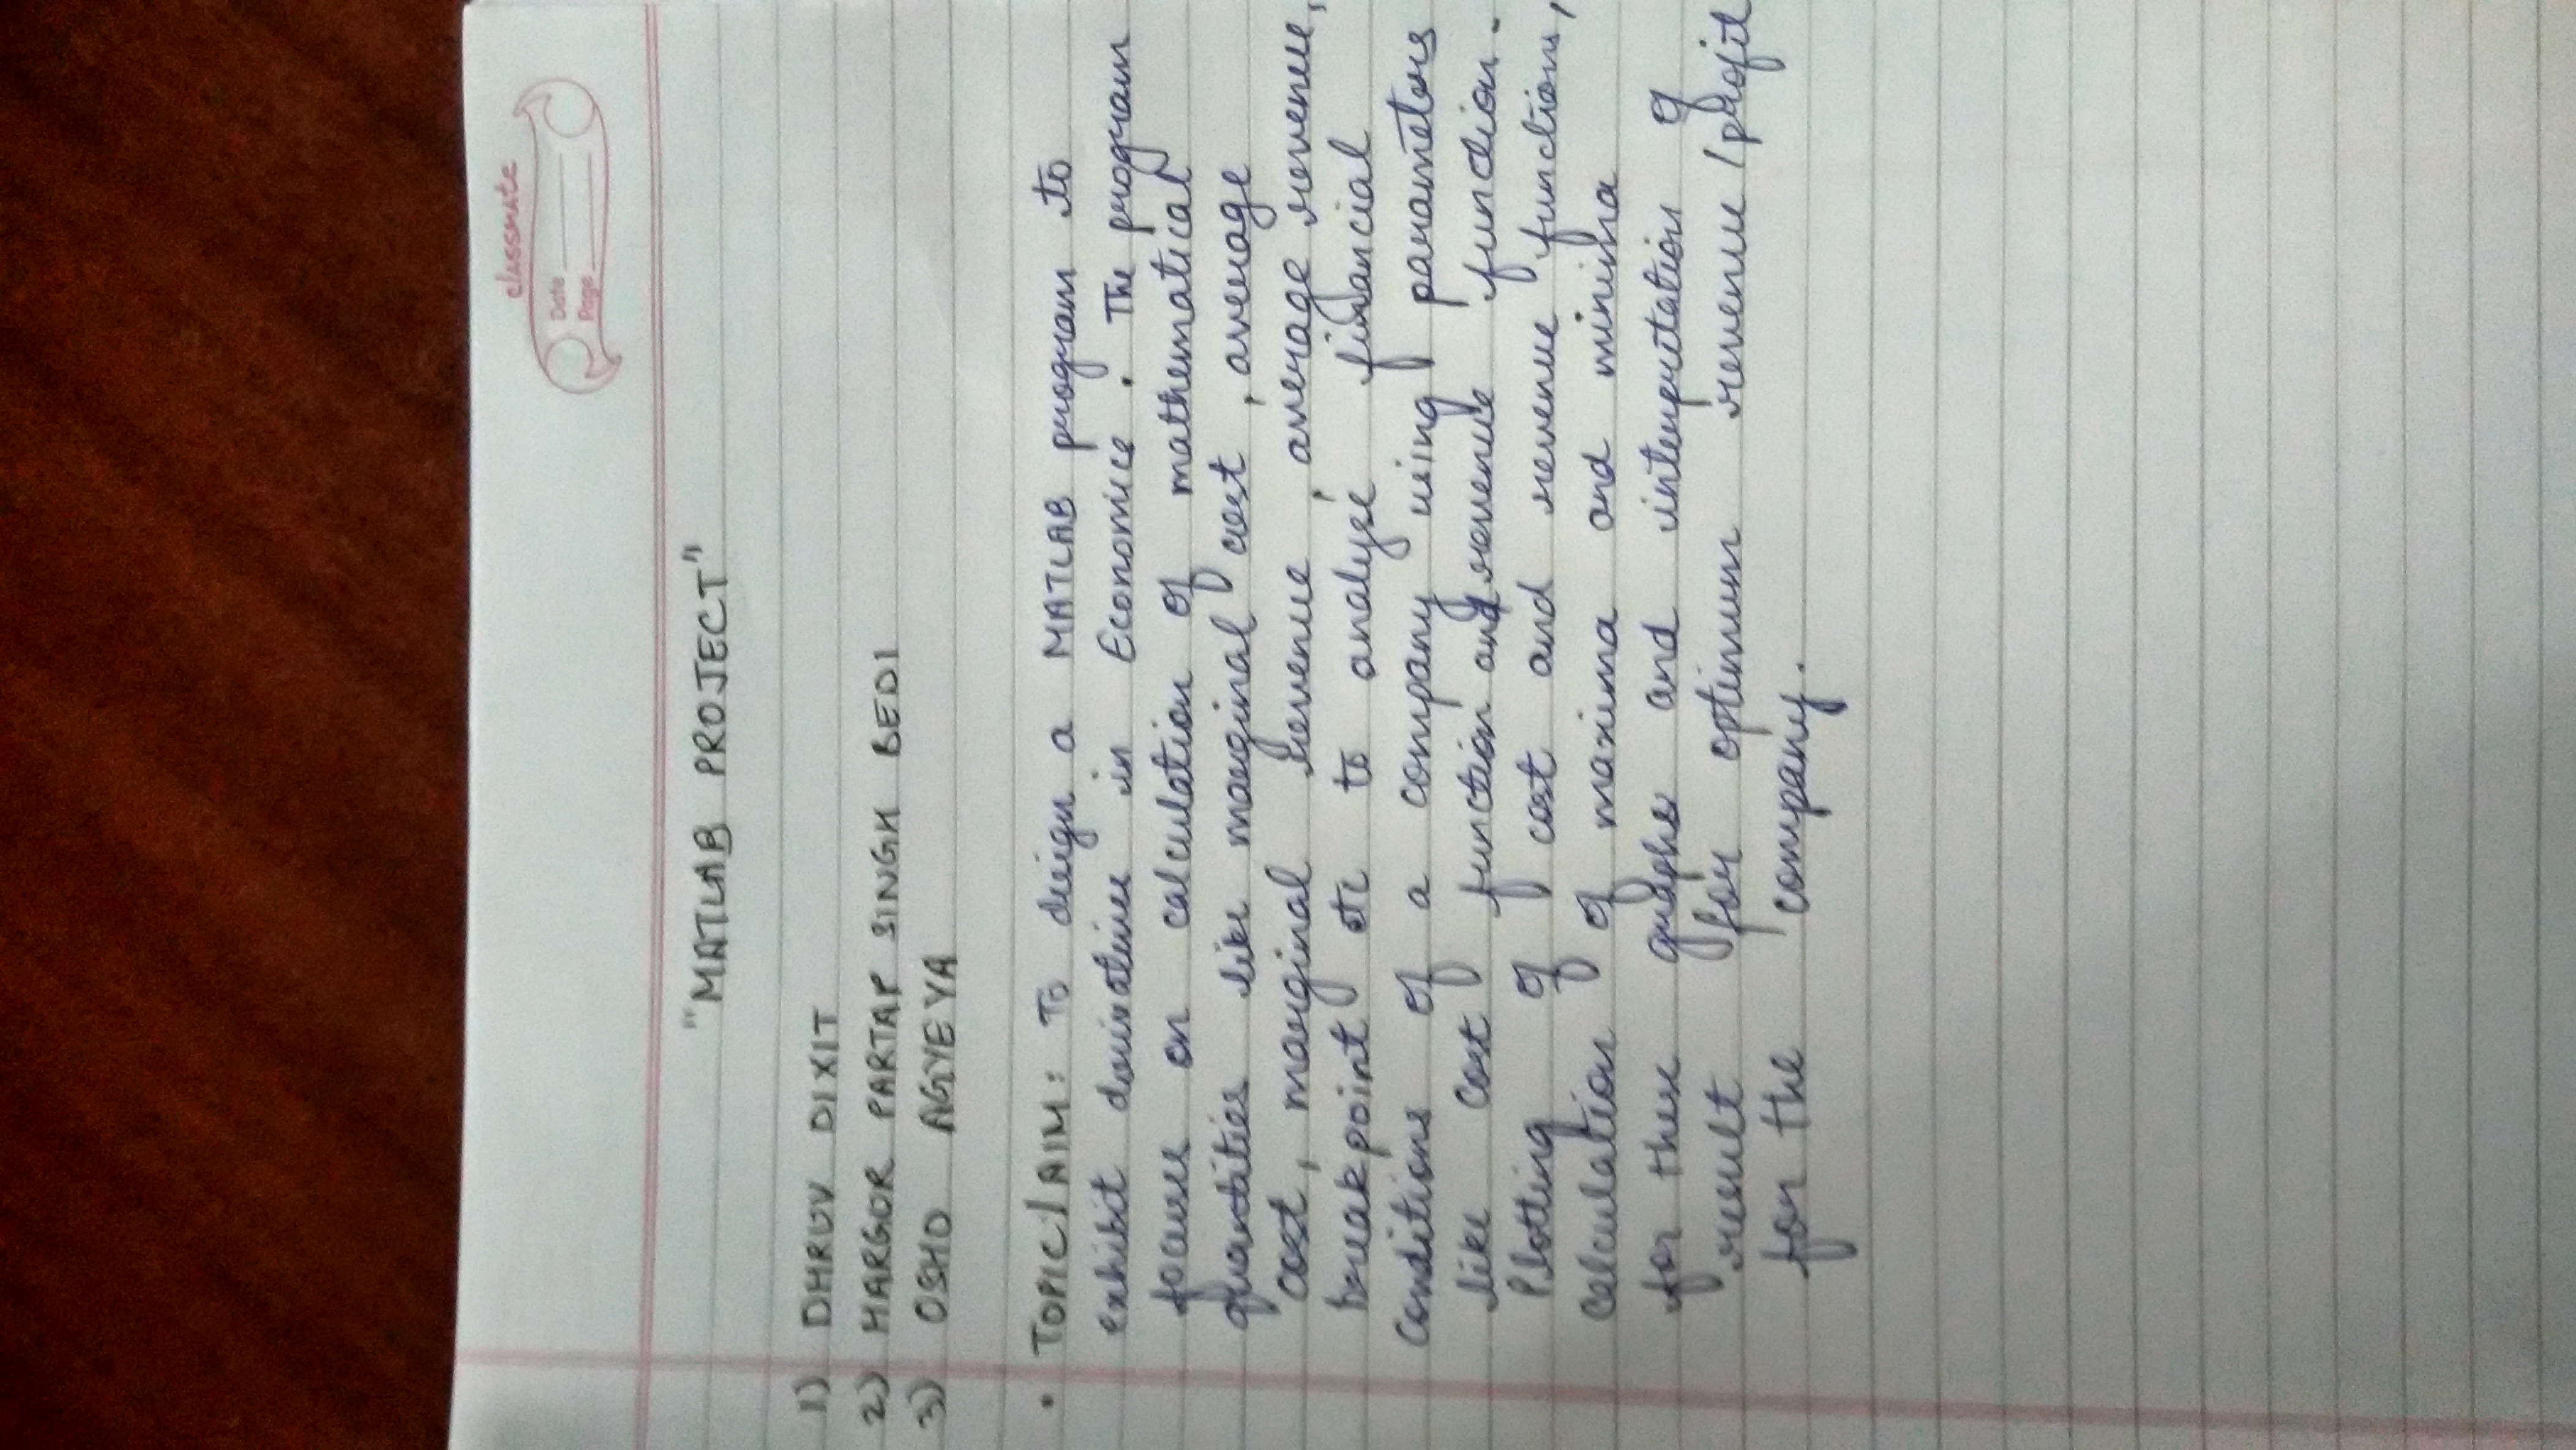 classmate
Date
Page
"MATLAB PROJECT"
1) DHRUV DIXIT
2) HARGOR PARTAP SINGH BEDI
3) OSHO AGYEYA
• TOPIC/AIM: To design a MATLAB program to
exhibit derivatives in Economics. The program
focuses on calculation of mathematical
quantities like marginal cost, average
cost, marginal revenue, average revenue,
breakpoint etc to analyse financial
conditions of a company using parameters
like cost function and revenue function.
Plotting of cost and revenue functions,
calculation of maxima and minima
for these graphs and interpretation of
result for optimum revenue/profit
for the company.